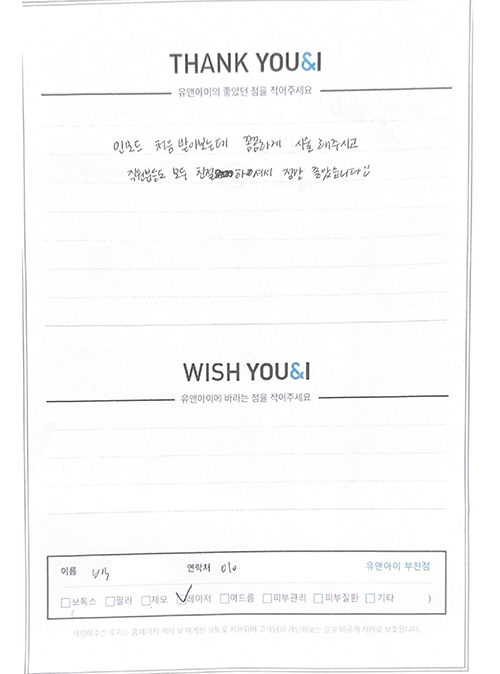 THANK YOU&I
유앤아이의 좋았던 점을 적어주세요
인모드 처음 받아보는데 꼼꼼하게 시술 해주시고
직원분들도 모두 친절 하셔서 정말 좋았습니다
WISH YOU&I
유앤아이에 바라는 점을 적어주세요
이름 연락처 010 유앤아이 부천점
보톡스 필러 제모 레이저 여드름 피부관리 피부질환 기타 )
작성해주신 후기는 홈페이지 게재 및 마케팅 용도로 사용되며 고객님의 개인정보는 일부 비공개 처리로 보호됩니다.